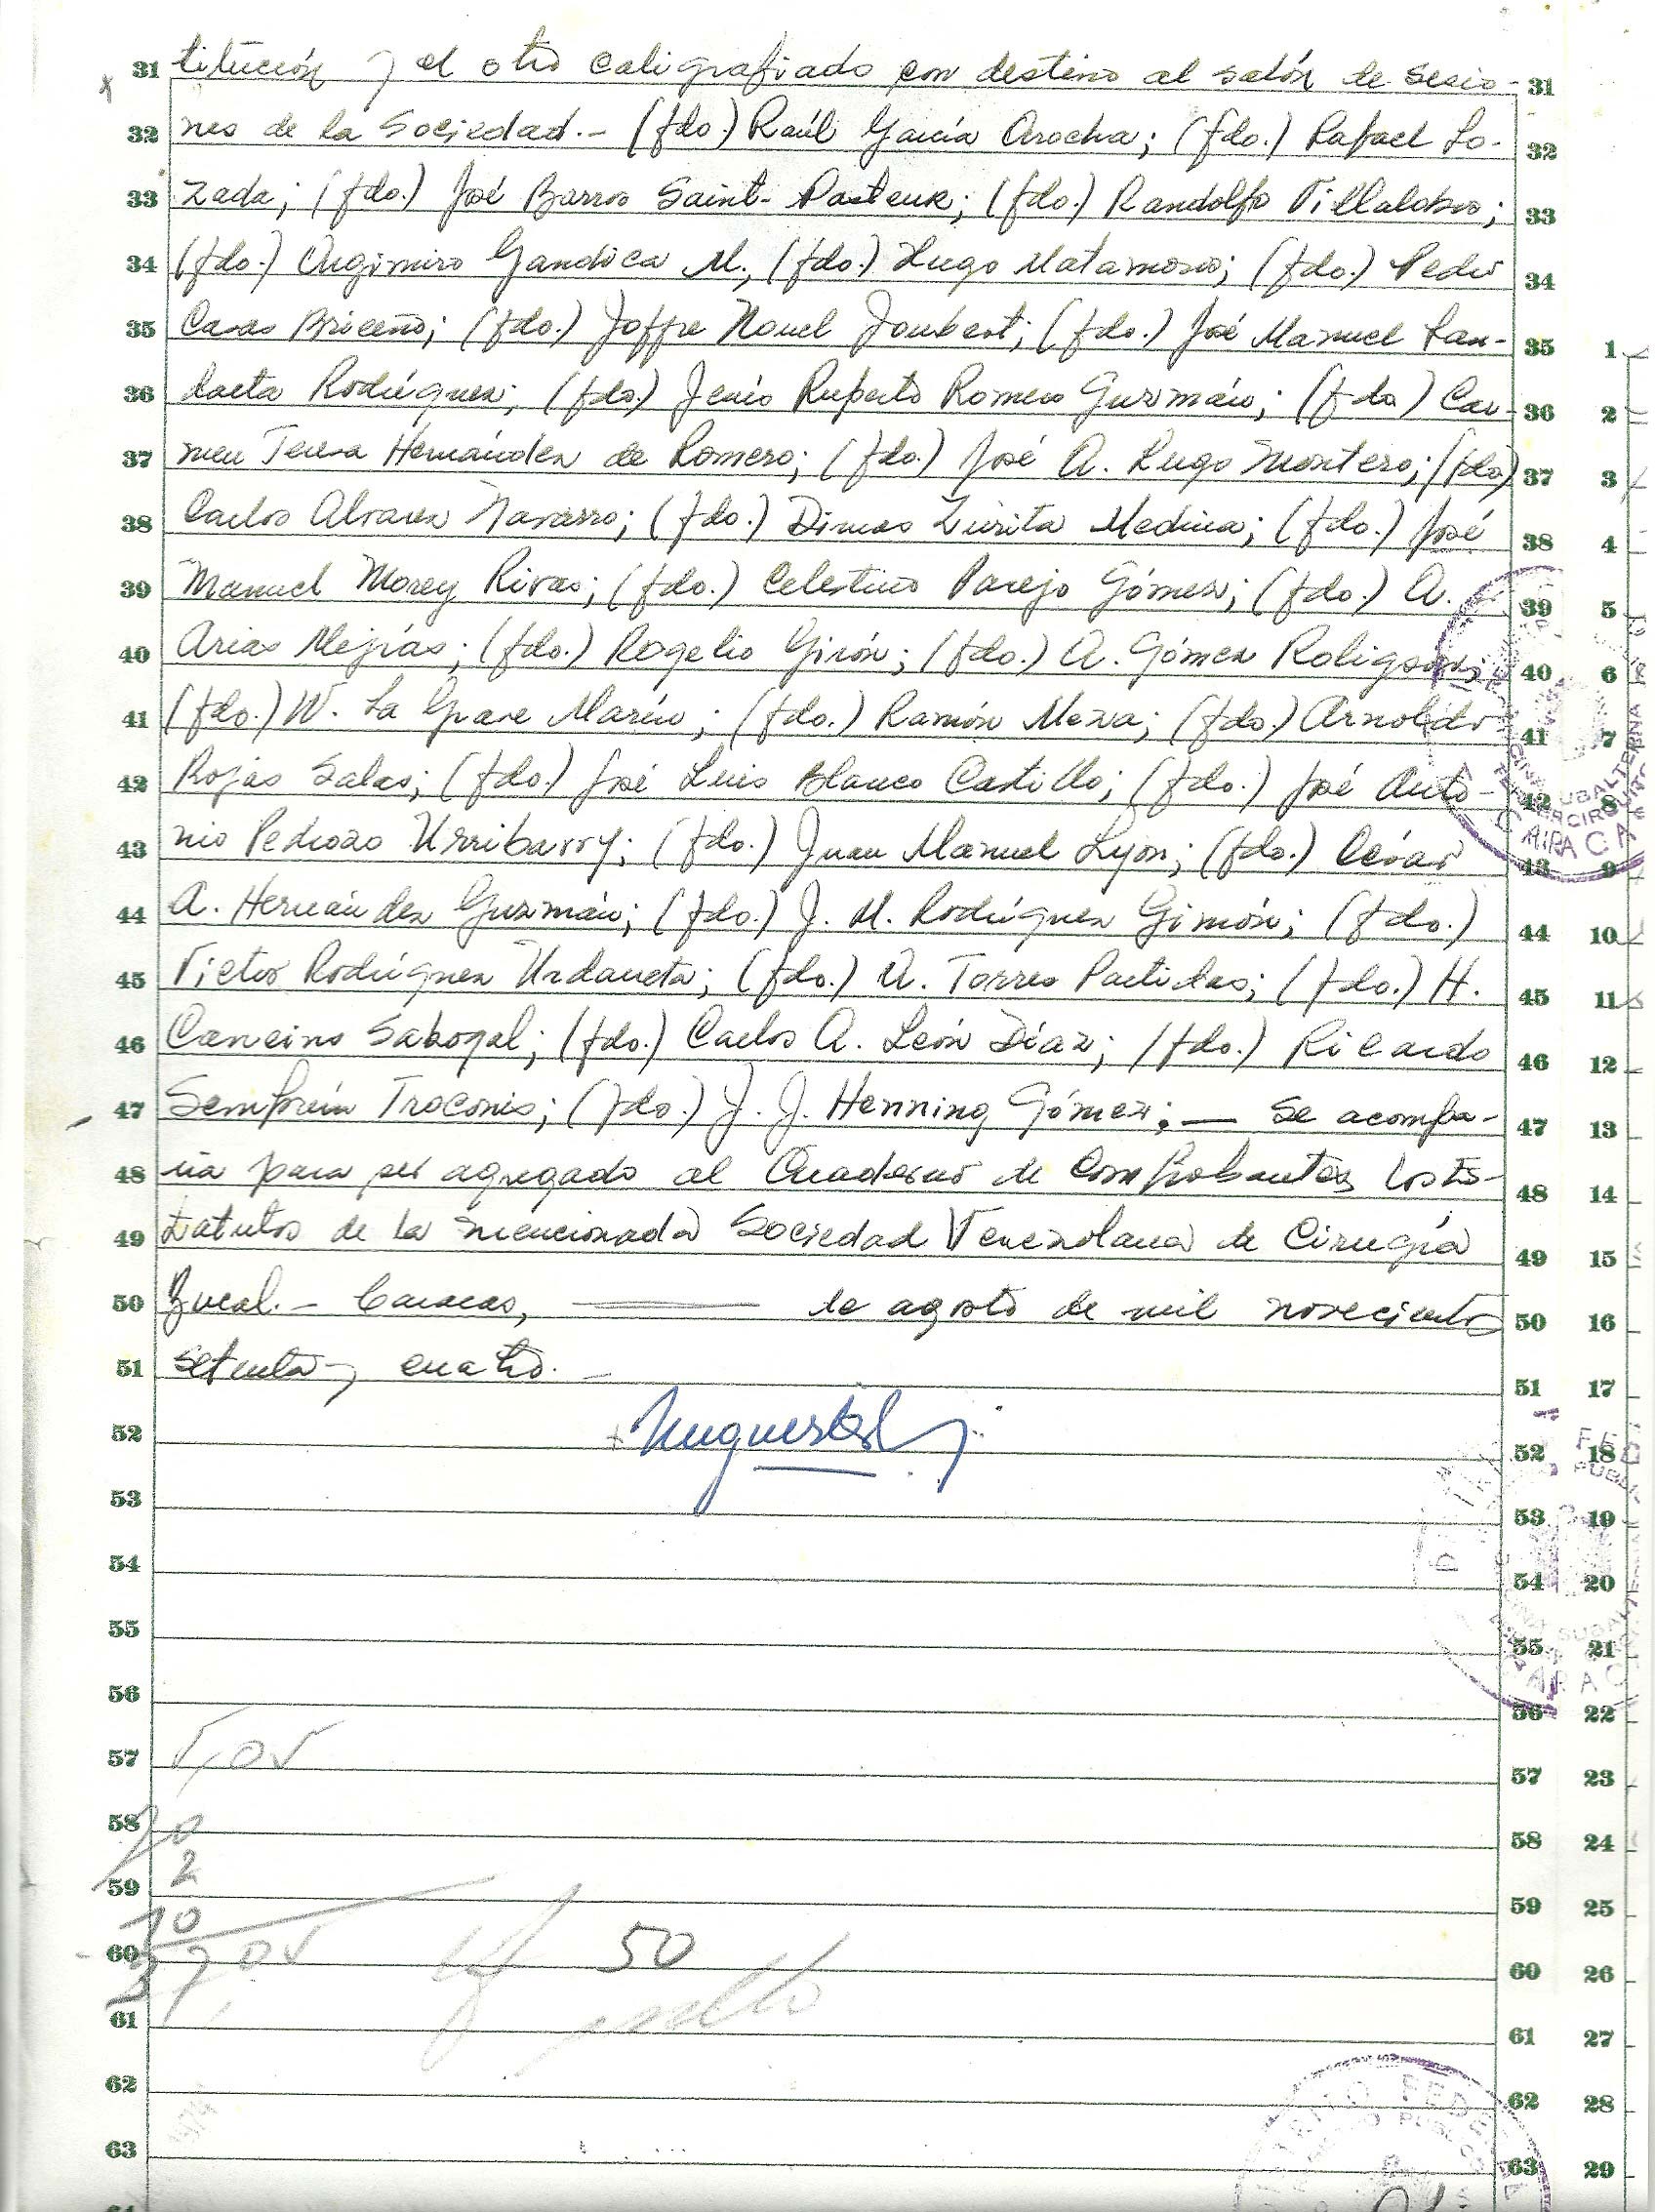 31 titución y el otro caligrafiado con destino al salón de sesio- 31
32 nes de la Sociedad.- (fdo.) Raúl García Arocha; (fdo.) Rafael Lo- 32
33 zada; (fdo.) José Barros Saint-Pasteur; (fdo.) Randolfo Villalobos; 33
34 (fdo.) Argimiro Gandica M.; (fdo.) Hugo Matamoros; (fdo.) Pedro 34
35 Casas Briceño; (fdo.) Joffre Nouel Joubert; (fdo.) José Manuel Lan- 35 1
36 daeta Rodríguez; (fdo.) Jesús Ruperto Romero Guzmán; (fdo) Car- 36 2
37 men Teresa Hernández de Romero; (fdo.) José A. Rugo Montero; (fdo) 37 3
38 Carlos Alvarez Navarro; (fdo.) Dimas Zurita Medina; (fdo.) José 38 4
39 Manuel Morey Rivas; (fdo.) Celestino Parejo Gómez; (fdo.) A. 39 5
40 Arias Mejías; (fdo.) Rogelio Girón; (fdo.) A. Gómez Roligsons; 40 6
41 (fdo.) W. La Grave Marín; (fdo.) Ramón Meza; (fdo.) Arnoldo 41 7
42 Rojas Salas; (fdo.) José Luis Blanco Castillo; (fdo.) José Anto- 42 8
43 nio Pedrozo Urribarry; (fdo.) Juan Manuel Lyon; (fdo.) César 43 9
44 A. Hernández Guzmán; (fdo.) J. M. Rodríguez Gimón; (fdo.) 44 10
45 Victor Rodríguez Urdaneta; (fdo.) A. Torres Partidas; (fdo.) H. 45 11
46 Cancino Sabogal; (fdo.) Carlos A. León Díaz; (fdo.) Ricardo 46 12
47 Semprún Troconis; (fdo.) J. J. Henning Gómez; — Se acompa- 47 13
48 ña para ser agregado al Cuaderno de Comprobantes los Es- 48 14
49 tatutos de la mencionada Sociedad Venezolana de Cirugía 49 15
50 Bucal.- Caracas, —— de agosto de mil novecientos 50 16
51 setenta y cuatro.- 51 17
52 52 18
53 53 19
54 54 20
55 55 21
56 56 22
57 57 23
58 20 58 24
2
59 59 25
10
60 50 60 26
61 61 27
62 62 28
63 63 29